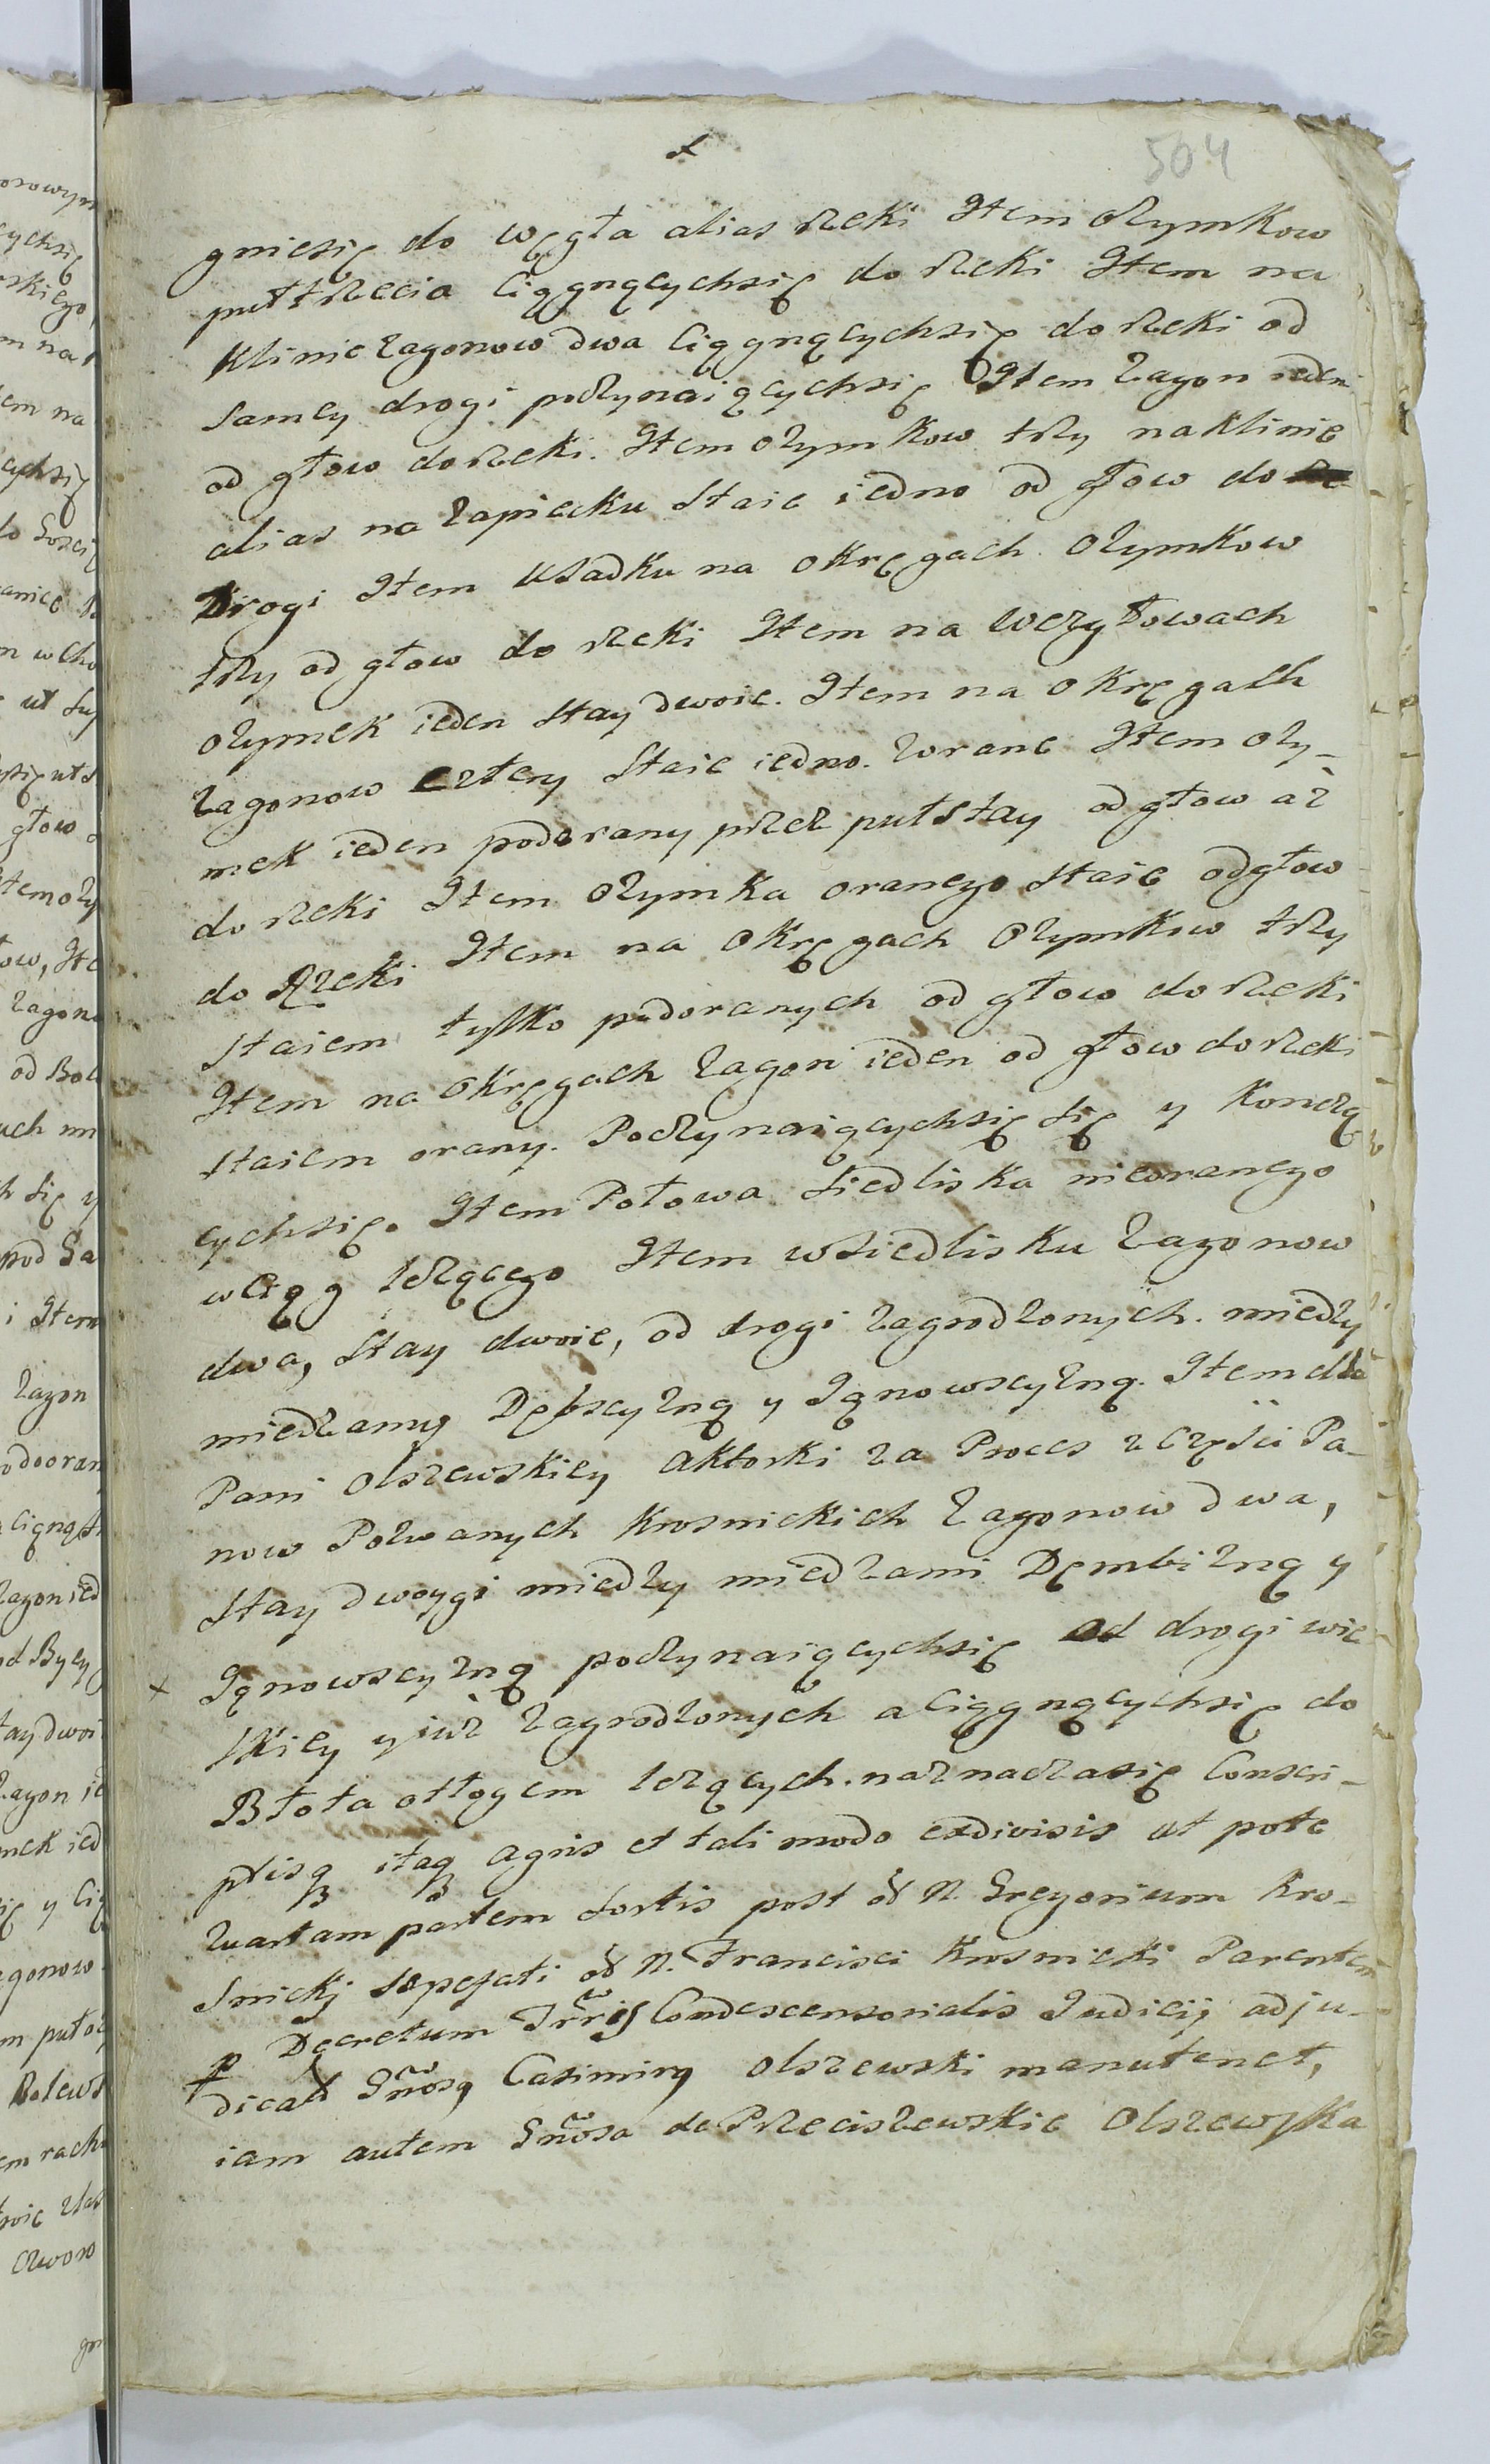 504
gniesię do węgła alias rzeki Item Ozymkow
pułtrzecia Ciągnącychsię do rzeki Item na
Klinie zagonow dwa Ciągnącychsię do rzeki od
samey drogi poczynaiącychsię Item Zagon ieden
od głow do rzeki. Item Ozymkow trzy na klinie
alias na zapiecku Staie iedno od głow do
Drogi Item Usadku na Okręgach Ozymkow
trzy od głow do rzeki Item na Wezgłowach
Ozymek ieden Stay dwoie. Item na Okręgach
Zagonow Cztery Staie iedno. Zorane Item Ozy-
mek ieden podorany przez pułstay od głow aż
do rzeki Item Ozymka oranego Staie od głow
do Rzeki Item na Okręgach Ozymkow trzy
Staiem tylko podoranych od głow do rzeki
Item na Okręgach Zagon ieden od głow do rzeki
Staiem orany. Poczynaiącychsię się y Konczą
cychsię. Item Połowa Siedliska nieoranego
w Ciąg leżącego Item w Siedlisku Zagonow
dwa, Stay dwoie, od drogi zagrodzonych. miedzy
miedzamy y Iąnowsczyzną. Item dla
Pani Olszewskiey Aktorki za Proces z Części Pa-
now Pozwanych Krosnickich Zagonow dwa,
Stay dwoygi miedzy miedzami Dembizną y
x Iąnowsczyzną poczynaiącychsię od drogi wie
skiey y iuż zagrodzonych a Ciągnącychsię do
Błota otłogem leżących. naznaczasię Conscri-
ptisq itaq agris et tali modo exdivisis ut pote
quartam partem Sortis post N. Gregorium Kro-
snickj N. Francisci Krosnicki Parentem
p Decretum Trris Condescensorialis Judicij adju-
Gnosq Casimirq Olszewski manutenet,
iam autem Gnosa de Przeciszewskie Olszewska